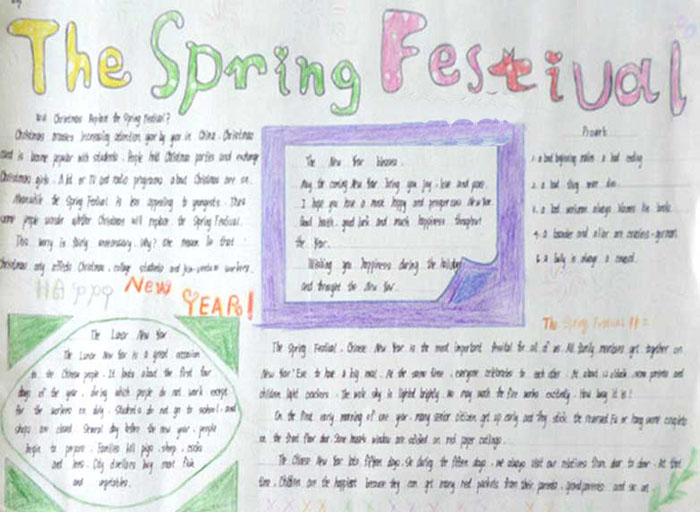 The Spring Festival
Will Christmas Replace the Spring Festival?
Christmas arouses increasing attention year by year in China. Christmas
card is become popular with students. People hold Christmas parties and exchange
Christmas gifts. A lot or TV and radio programs about Christmas are on.
Meanwhile the Spring Festival is less appealing to youngsters. Thus
some people wonder whether Christmas will replace the Spring Festival.
This worry is fairly unnecessary. Why? One reason is that
Christmas only affects Christmas, college students and workers.
Happy New YEAR!
The New Year blessing.
May the coming New Year bring you joy, love and peace.
I hope you have a most happy and prosperous New Year.
Good health, good luck and much happiness throughout
the Year.
Wishing you happiness during the holidays
and throught the New Year.
Proverb
1. a bad beginning makes a bad ending
2. a bad thing never dies.
3. a bad workman always blames his tools.
4. a and a liar are cousins-german.
5. a bully is always a coward.
The Lunar New Year
The Lunar New Year is a great occasion
to the Chinese people. It lasts about the first four
days of the year, during which people do not work except
for the workers on duty. Students do not go to school, and
shops are closed. Several day before the new year, people
begin to prepare. Families kill pigs, sheep, cocks
and hens. City dwellers buy meat fish
and vegetables.
The Spring Festival
The Spring Festival, Chinese New Year is the most important festival for all of us. All family members get together on
New Year' Eve to have a big meal. At the same time, everyone celebrates to each other. At about 12 o'clock, some parents and
children light crackers. The whole sky is lighted brightly. We may watch the fire works excitedly. How busy it is!
On the first early morning of one year, many senior citizen get up early and they stick the reversed Fu or hang some couplets
on the front door. Some house's window are sticked on red paper cuttings.
The Chinese New Year lasts fifteen days. So during the fifteen days, we always visit our relatives from door to door. At that
time, Children are the happiest because they can get many red packets from their parents, grandparents and so on.